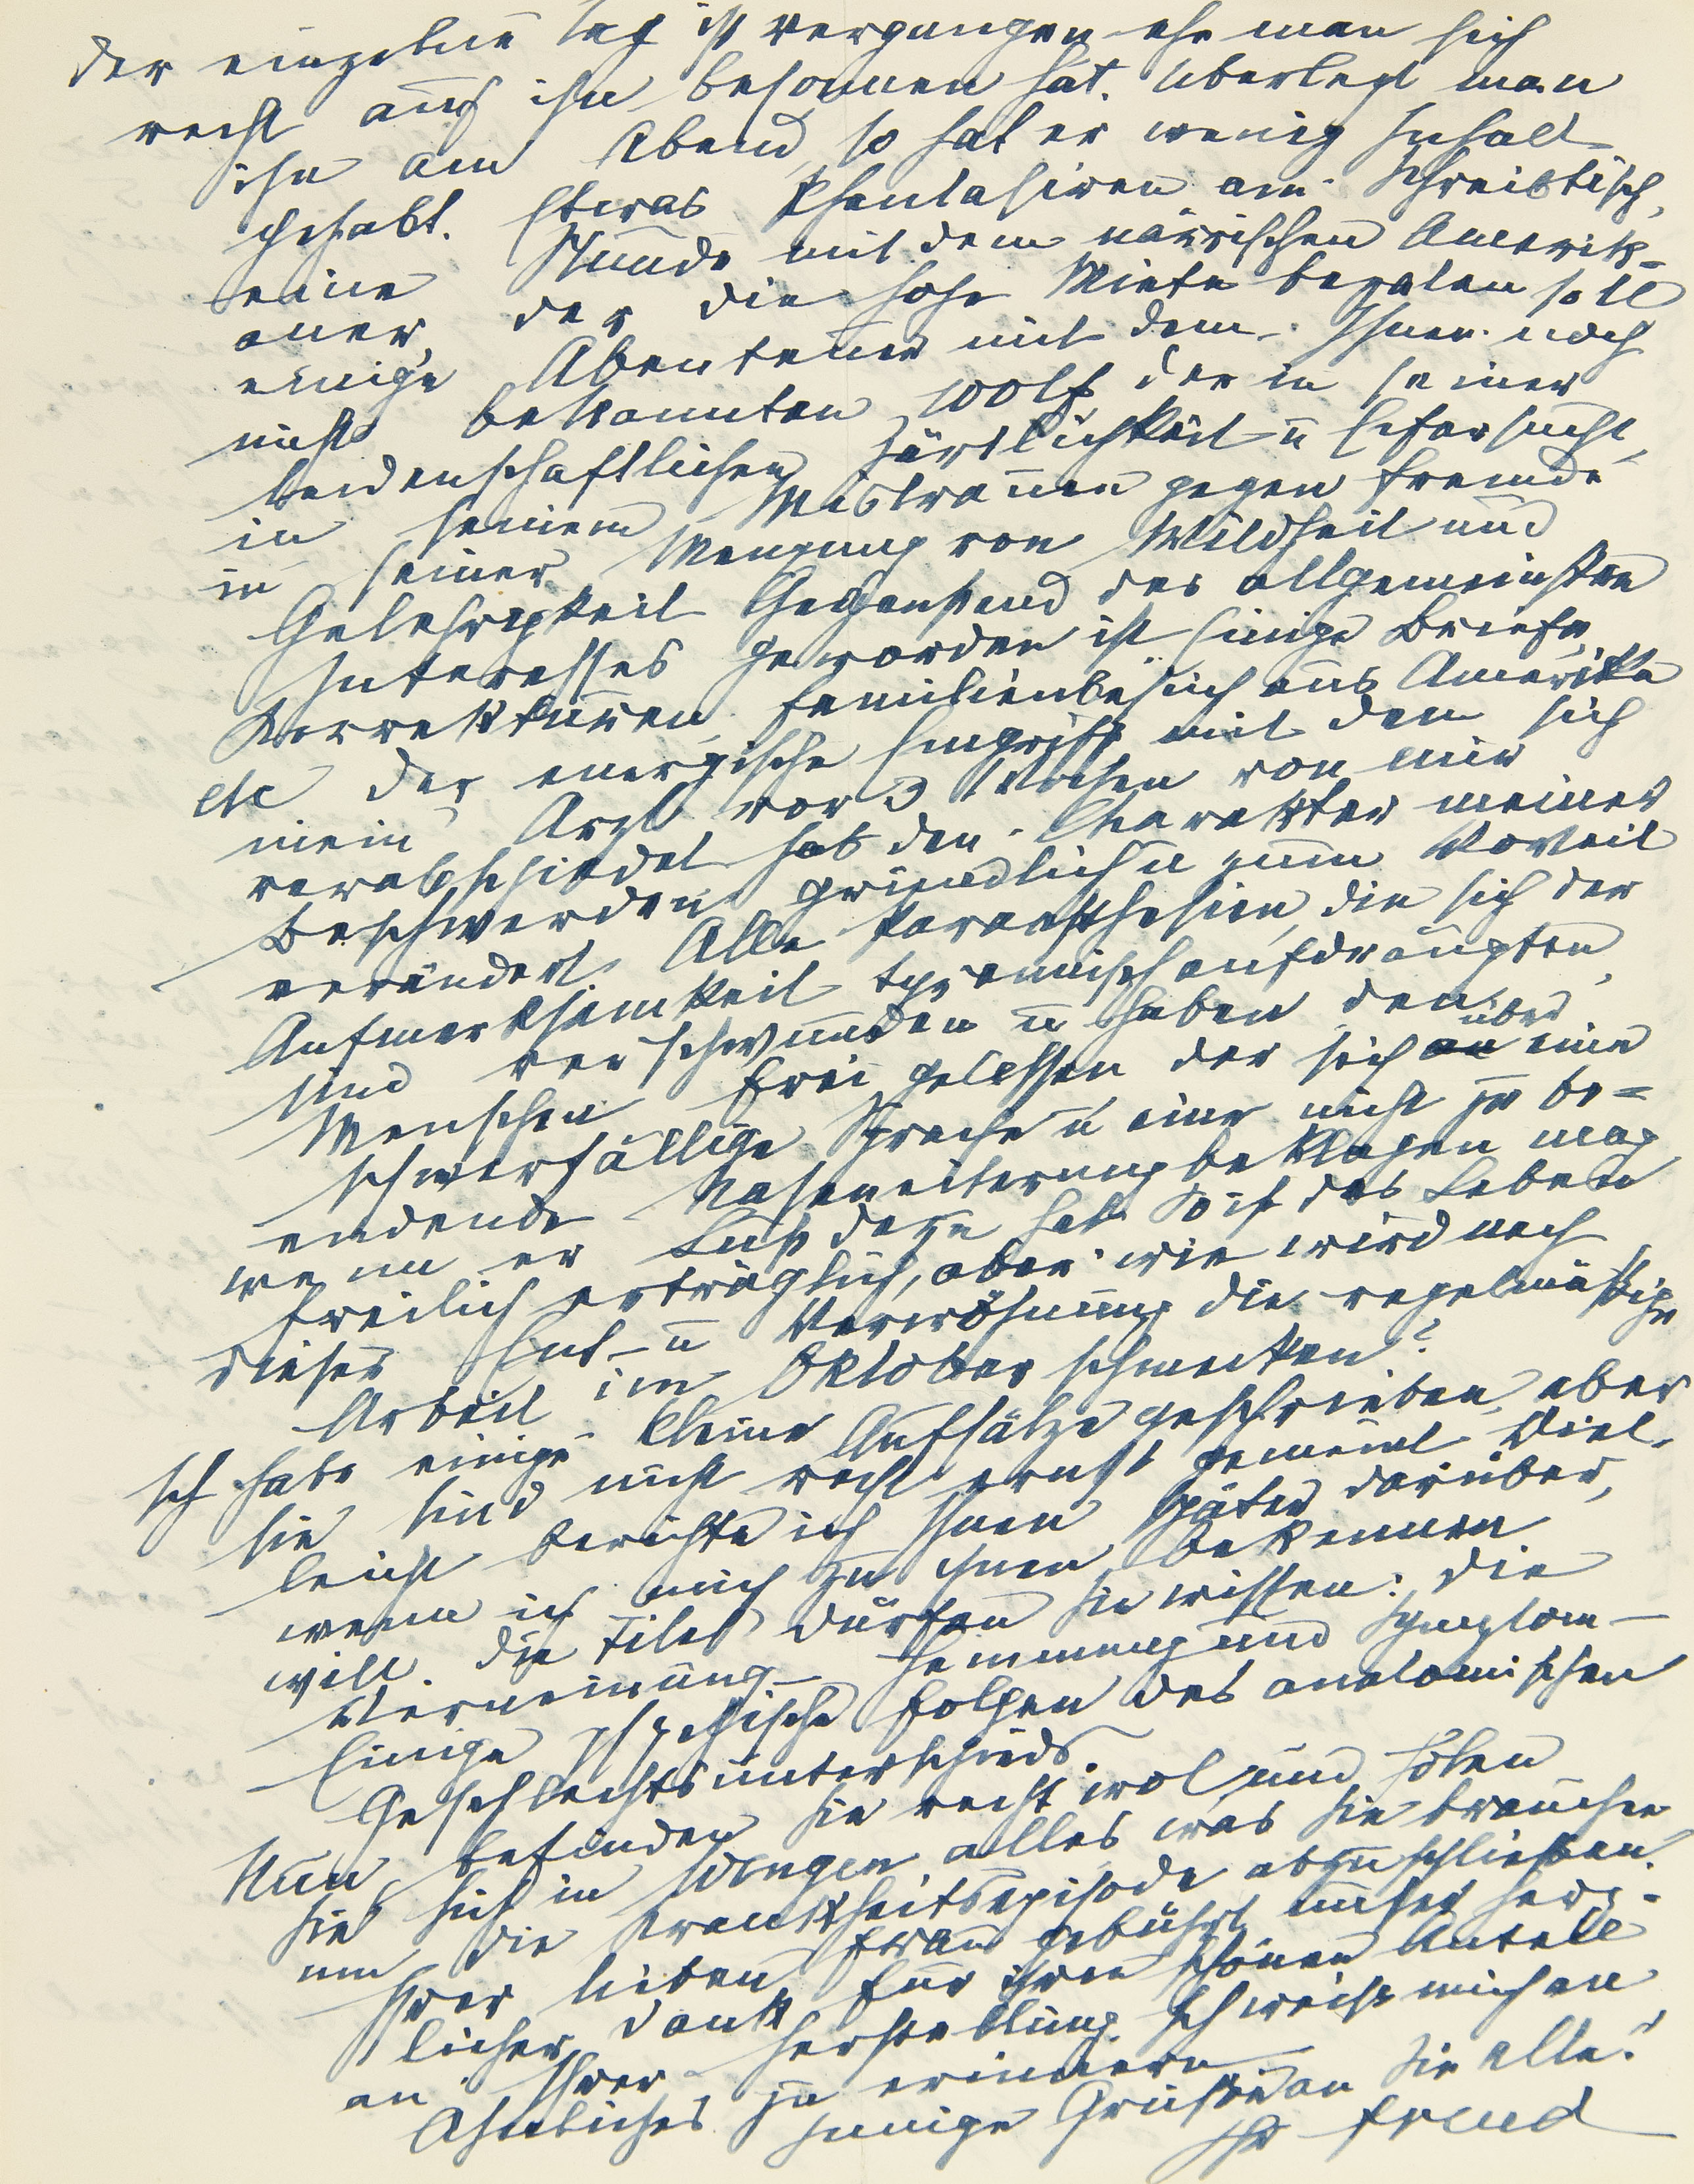 der einzelne Tag ist vergangen ehe man sich
recht auf ihn besonnen hat. Überlegt man
ihn am Abend, so hat er wenig Inhalt
gehabt. Etwas Phantasiren am Schreibtisch,
eine Stunde mit dem närrischen Amerik-
aner, der die hohe Miete bezalen soll
einige Abenteuer mit dem Ihnen noch
nicht bekannten Wolf der in seiner
leidenschaftlichen Zärtlichkeit u Eifersucht,
in seinem Mistrauen gegen Fremde
in seiner Mengung von Wildheit und
Gelehrigkeit Gegenstand des allgemeinsten
Interesses geworden ist Einige Briefe,
Korrekturen, Familienbesuch aus Amerika
etc Der energische Eingriff, mit dem sich
mein Arzt vor 3 Wochen von mir
verabschiedet hat den Charakter meiner
Beschwerden gründlich u zum Vorteil
verändert. Alle Paraesthesien, die sich der
Aufmerksamkeit tyrannisch aufdrängten,
sind verschwunden u haben den
über
Menschen frei gelassen der sich an eine
schwerfällige Sprache u eine nicht zu be=
endende Naseneiterung beklagen mag
wenn er Lust dazu hat So ist das Leben
freilich erträglich, aber wie wird nach
dieser Ent- u Verwöhnung die regelmäßige
Arbeit im Oktober schmecken?
Ich habe einige kleine Aufsätze geschrieben, aber
sie sind nicht recht ernst gemeint Viel-
leicht berichte ich Ihnen später darüber,
wenn ich mich zu ihnen bekennen
will. Die Titel dürfen Sie wissen: Die
Verneinung – Hemmung und Symptom –
Einige psychische Folgen des anatomischen
Geschlechtsunterschieds.
Nun, befinden Sie recht wol und holen
Sie sich in Wengen alles was Sie brauchen
um die Krankheitsepisode abzuschließen.
Ihrer lieben Frau gebührt unser herz-
licher Dank für ihren schönen Anteil
an Ihrer Herstellung. Ich weiß mich an
Ähnliches zu erinnern
Innige Grüße an Sie alle!
Ihr Freud